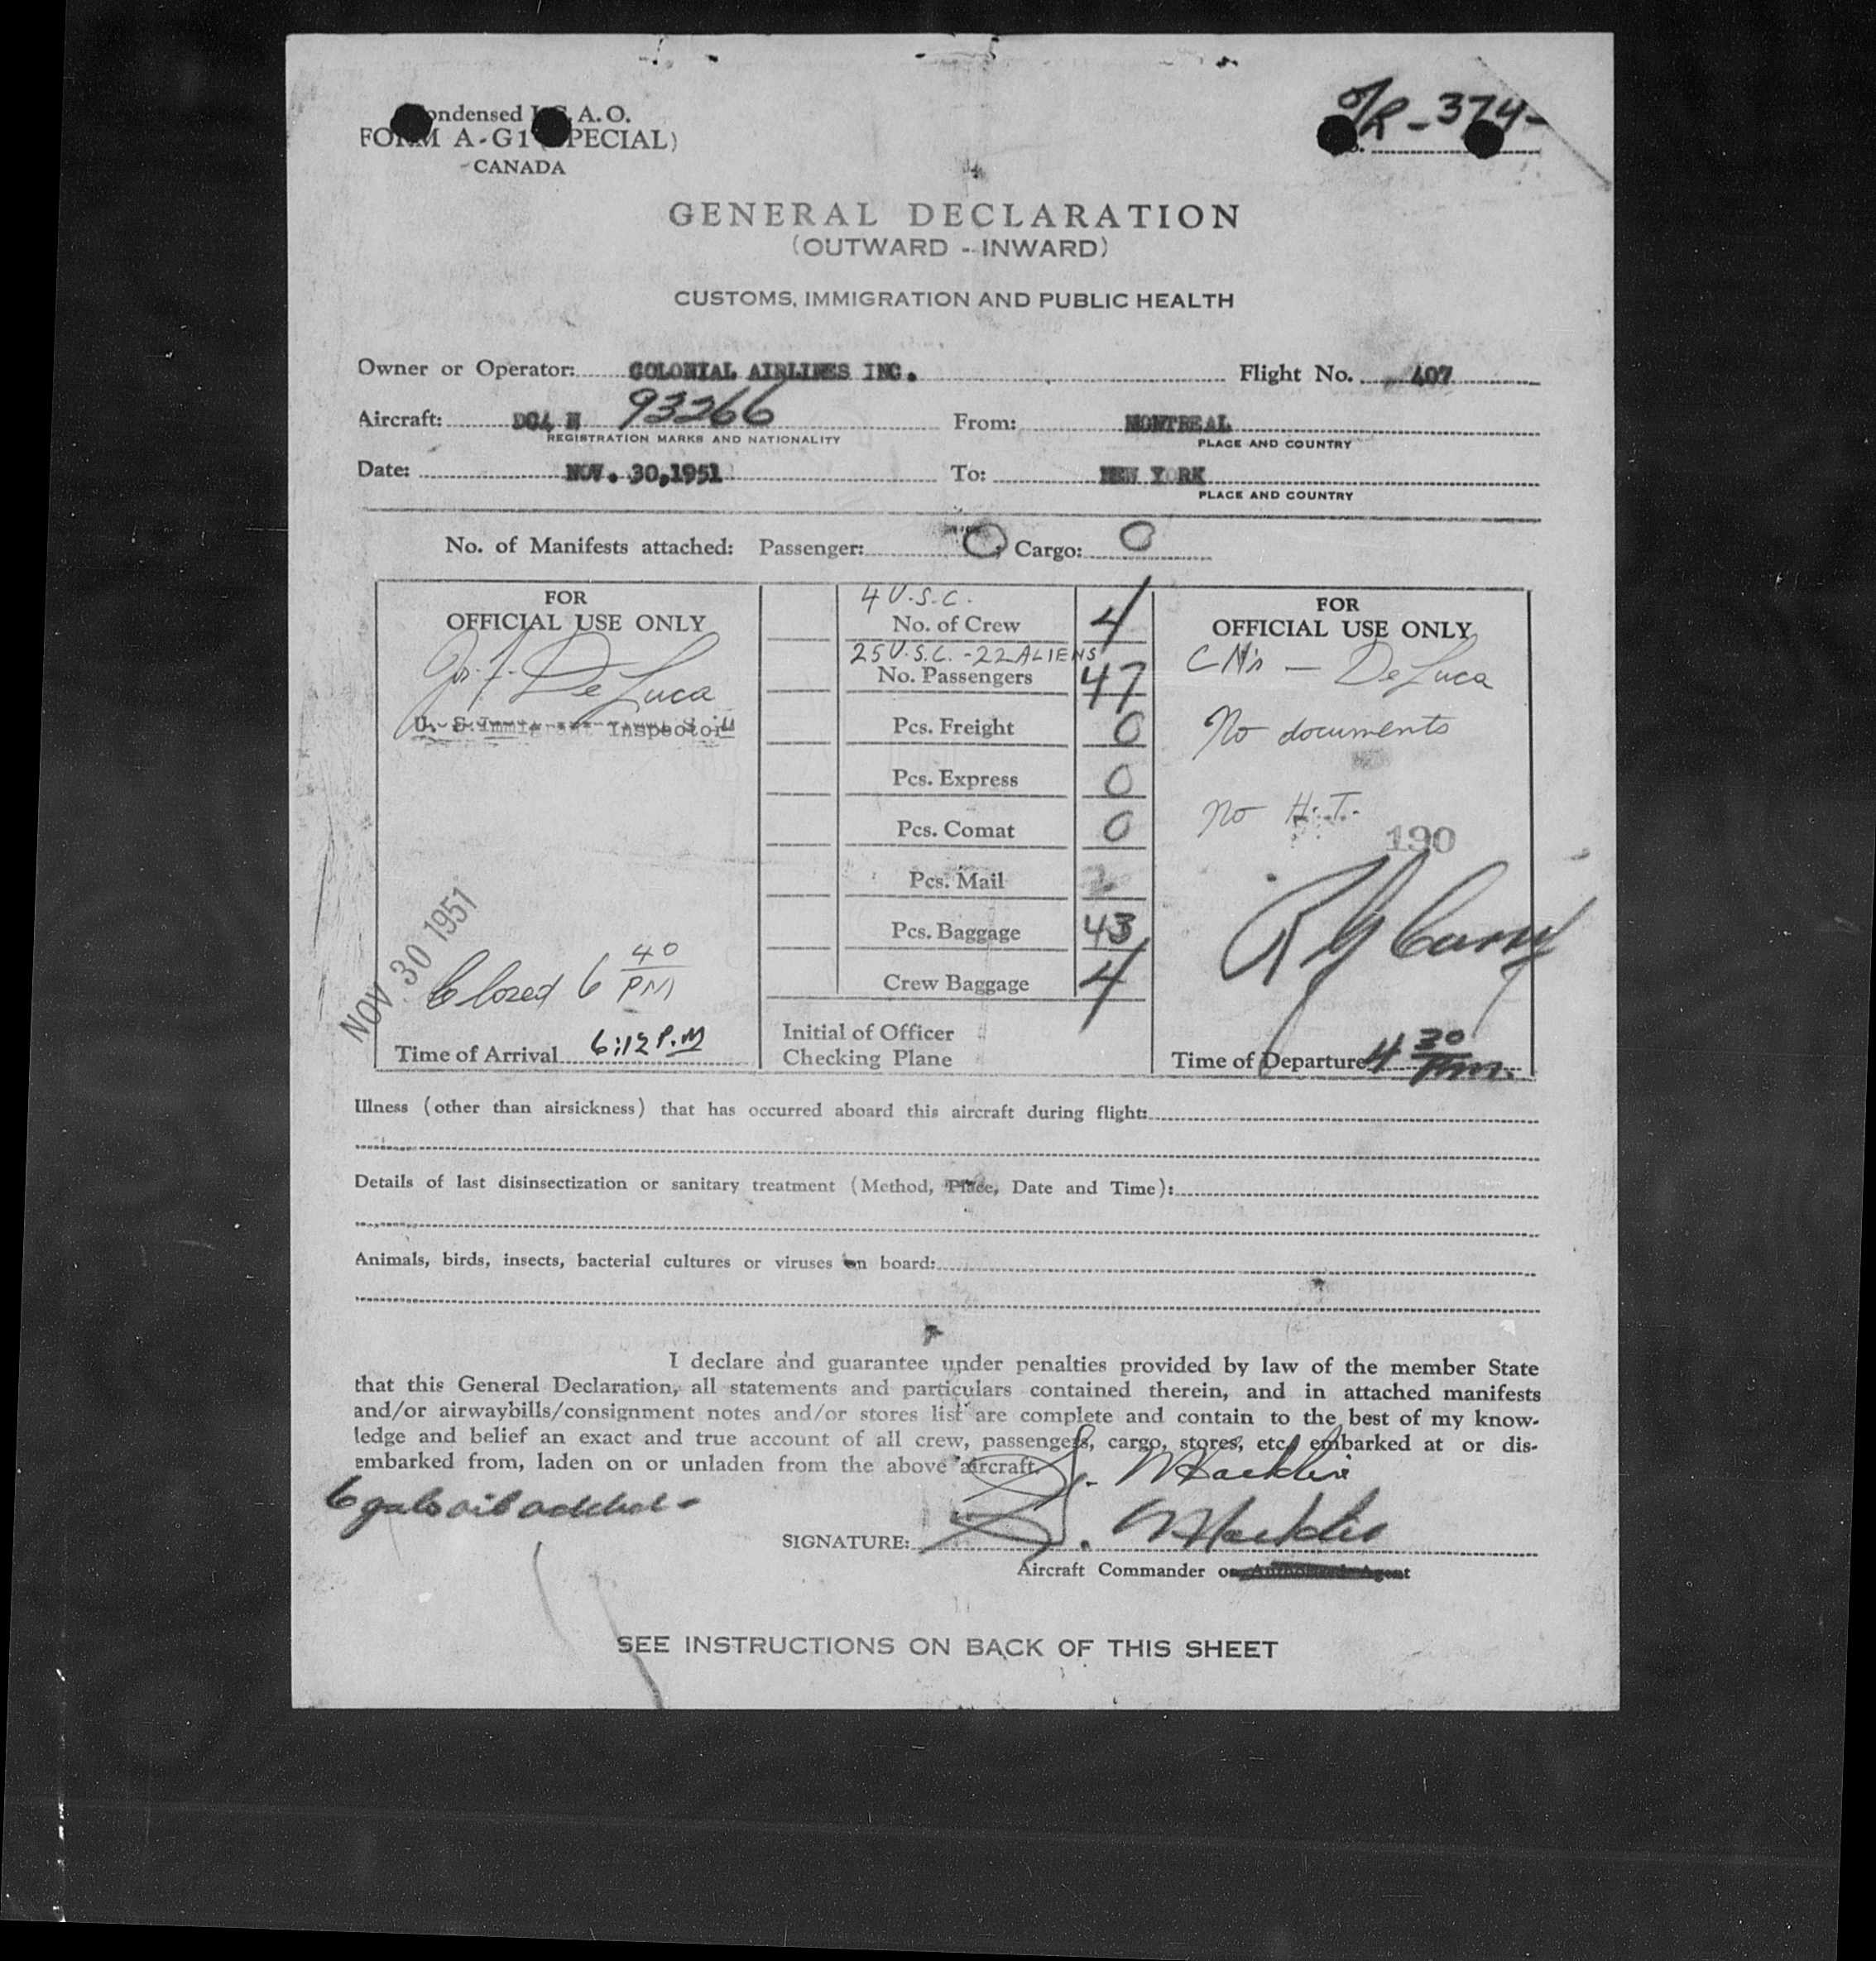 Condensed I.C.A.O.
FORM A-G1 (SPECIAL)
CANADA
O/R-374-
GENERAL DECLARATION
(OUTWARD - INWARD)
CUSTOMS, IMMIGRATION AND PUBLIC HEALTH
Owner or Operator: COLONIAL AIRLINES INC. Flight No. 407
Aircraft: DC4 N 93266 From: MONTREAL
REGISTRATION MARKS AND NATIONALITY PLACE AND COUNTRY
Date: NOV. 30,1951 To: NEW YORK
PLACE AND COUNTRY
No. of Manifests attached: Passenger: 0, Cargo: 0
FOR
OFFICIAL USE ONLY
De Luca
U. S. Inspector
NOV 30 1951
Closed 6 40 PM
Time of Arrival 6:12 P.M
4 U.S.C.
No. of Crew 4
25 U.S.C. - 22 ALIENS
No. Passengers 47
Pcs. Freight 0
Pcs. Express 0
Pcs. Comat 0
Pcs. Mail
Pcs. Baggage 43
Crew Baggage 4
Initial of Officer
Checking Plane
FOR
OFFICIAL USE ONLY
De Luca
No documents
No H.T.
190
Time of Departure 4 30 P.m.
Illness (other than airsickness) that has occurred aboard this aircraft during flight:
Details of last disinsectization or sanitary treatment (Method, Place, Date and Time):
Animals, birds, insects, bacterial cultures or viruses on board:
I declare and guarantee under penalties provided by law of the member State
that this General Declaration, all statements and particulars contained therein, and in attached manifests
and/or airwaybills/consignment notes and/or stores list are complete and contain to the best of my know-
ledge and belief an exact and true account of all crew, passengers, cargo, stores, etc. embarked at or dis-
embarked from, laden on or unladen from the above aircraft.
6 gals oil added -
SIGNATURE:
Aircraft Commander or Authorized Agent
SEE INSTRUCTIONS ON BACK OF THIS SHEET